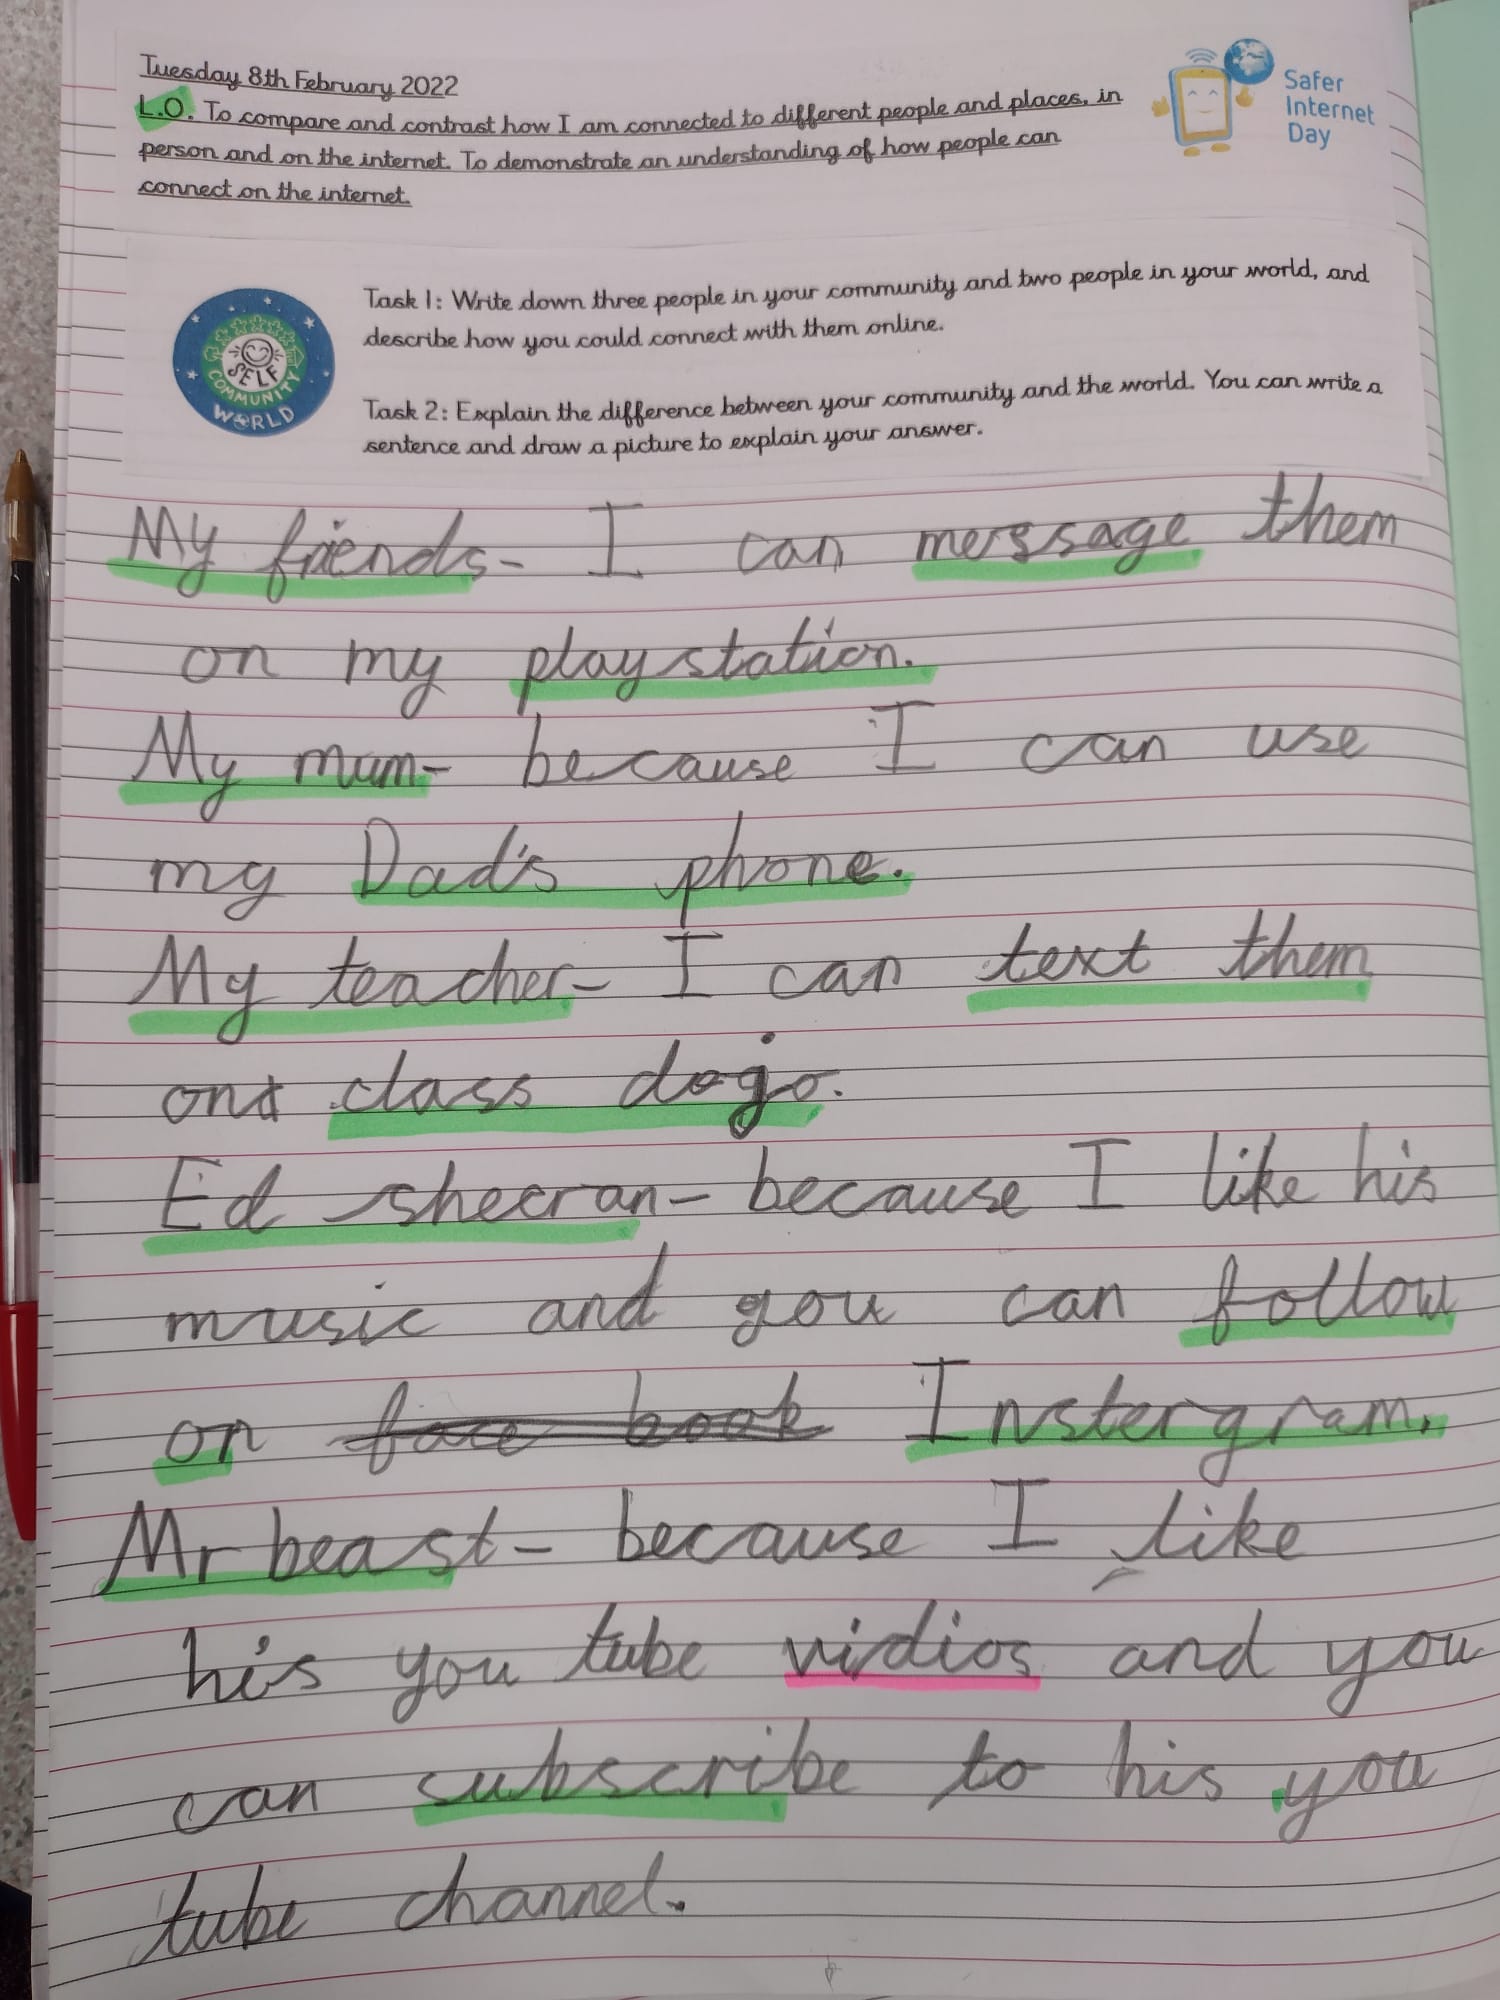 Tuesday 8th February 2022
L.O. To compare and contrast how I am connected to different people and places, in
person and on the internet. To demonstrate an understanding of how people can
connect on the internet.
Safer
Internet
Day
SELF
COMMUNITY
WORLD
Task 1: Write down three people in your community and two people in your world, and
describe how you could connect with them online.
Task 2: Explain the difference between your community and the world. You can write a
sentence and draw a picture to explain your answer.
My friends- I can message them
on my playstation.
My mum- because I can use
my Dad's phone.
My teacher- I can text them
on class dojo.
Ed sheeran- because I like his
music and you can follow
on face book Instergram.
Mr beast- because I like
his you tube vidios and you
can subscribe to his you
tube channel.